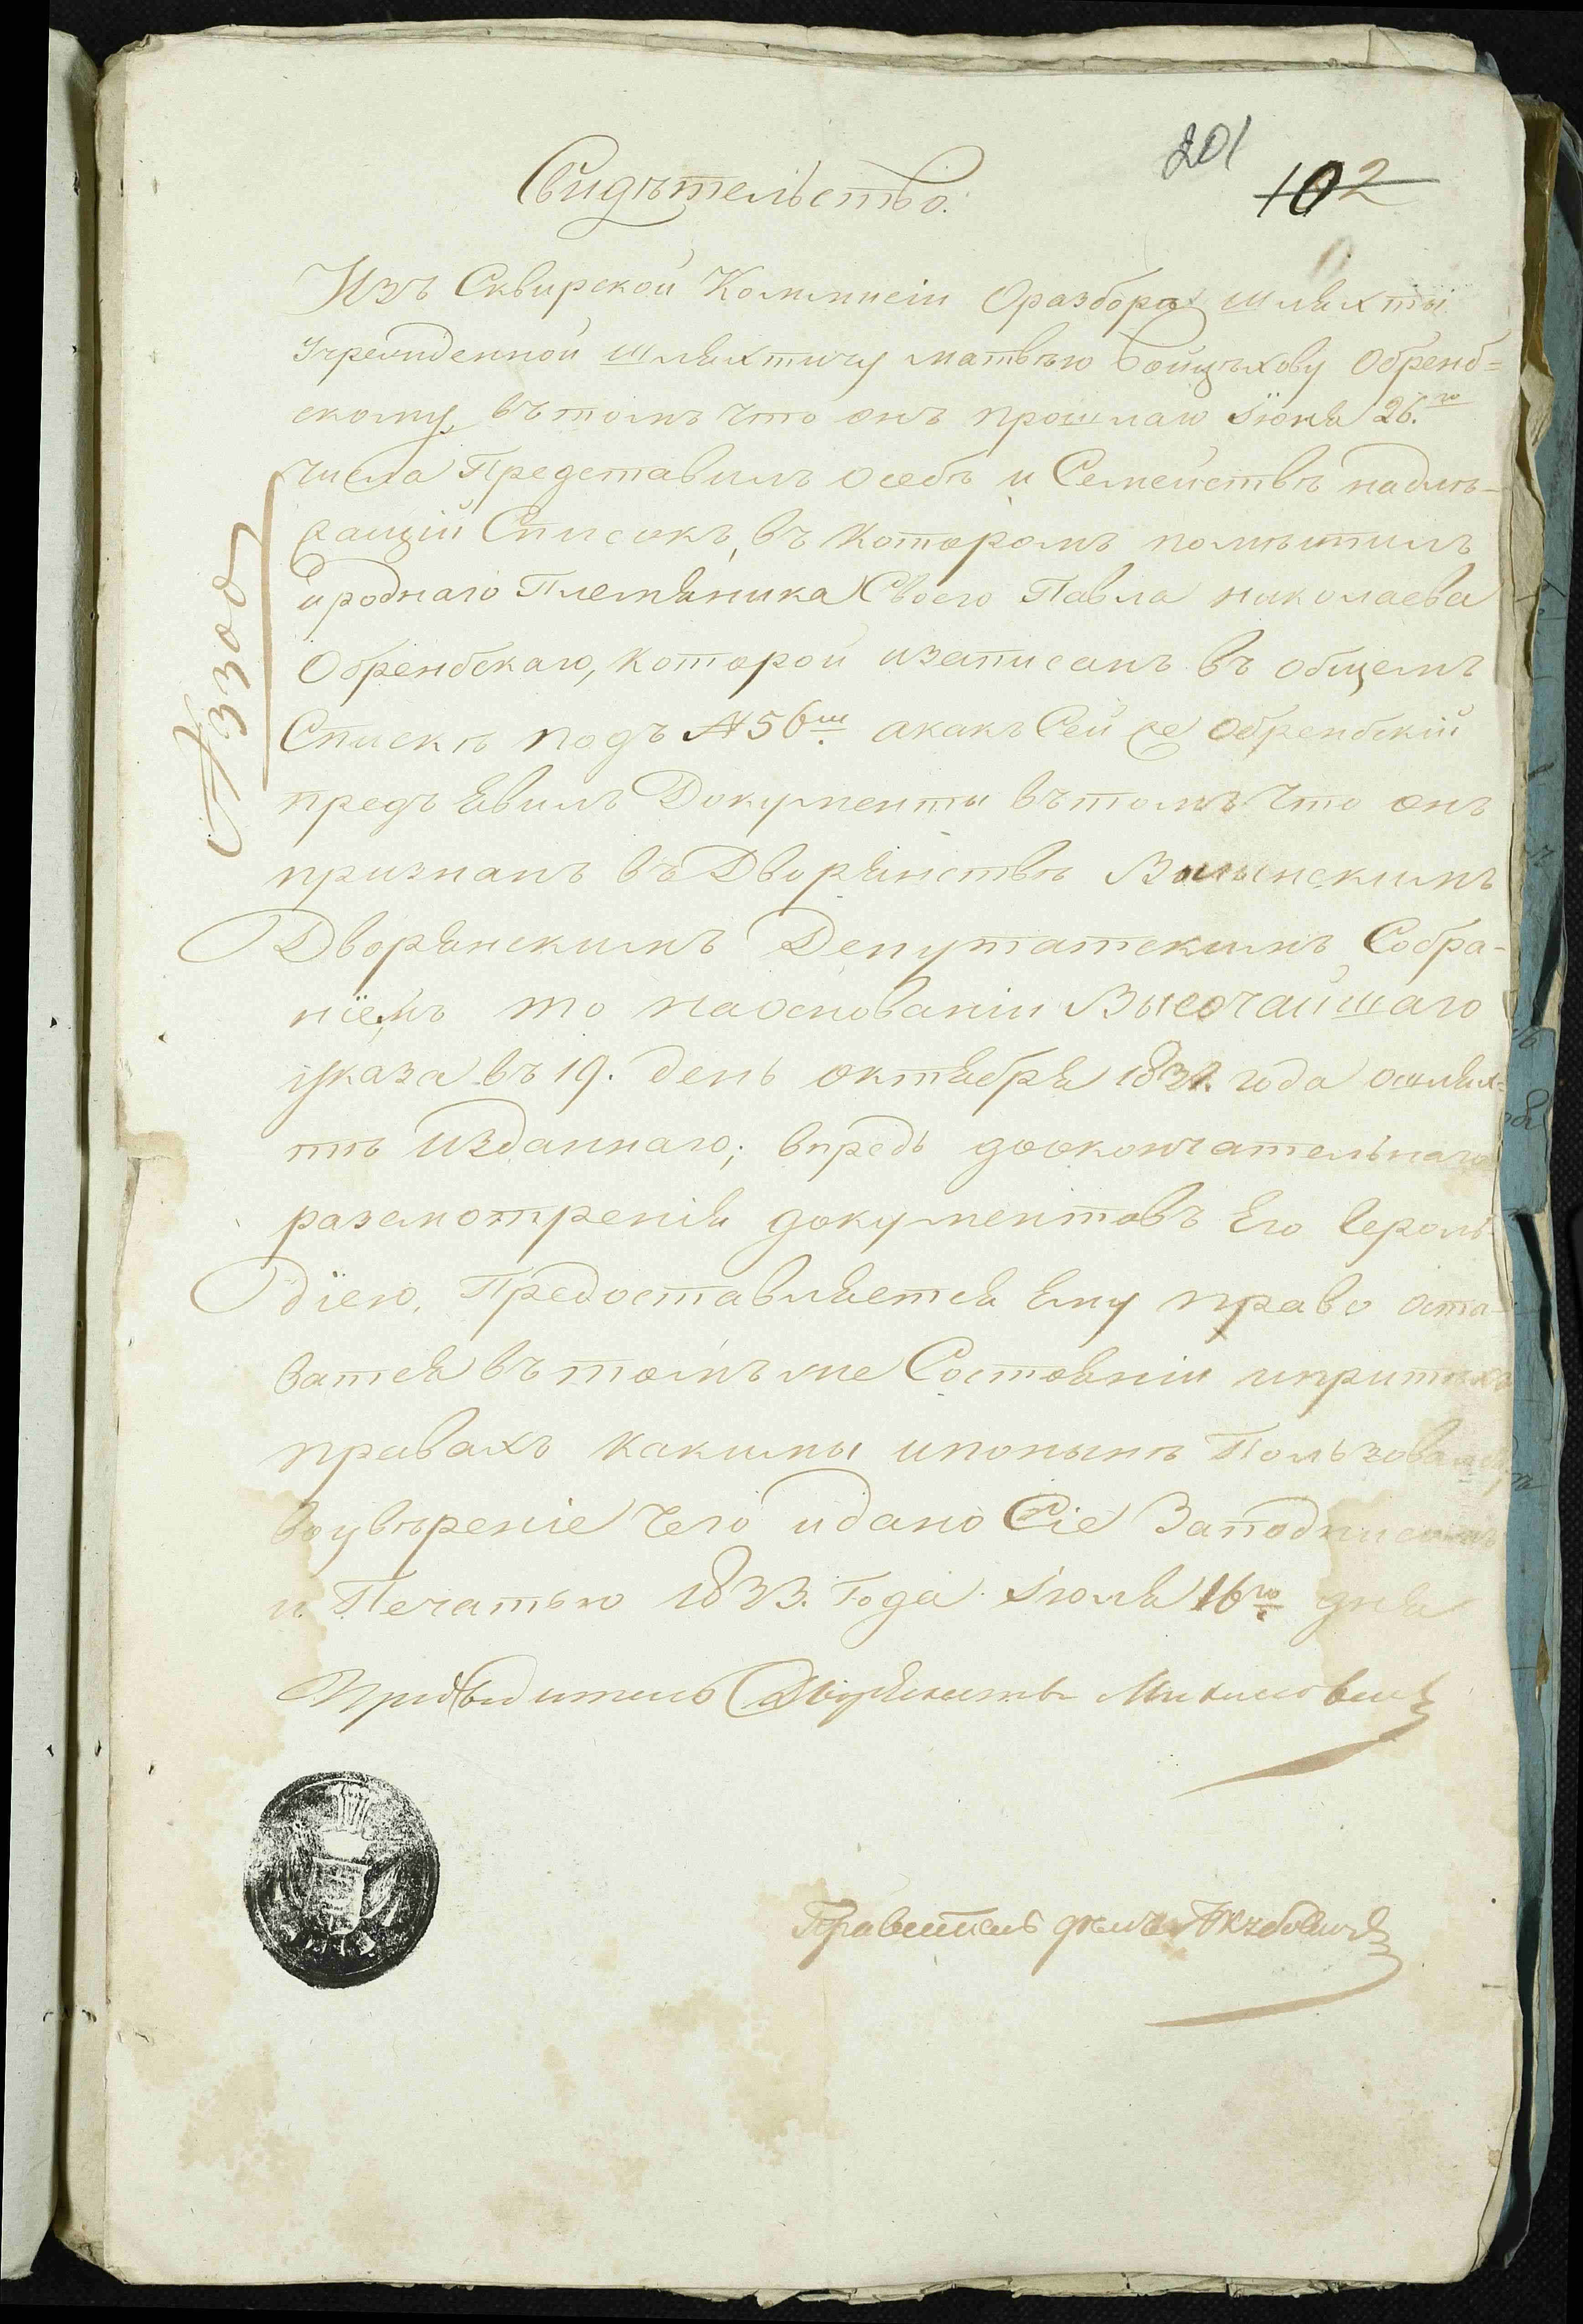 201
102
Свидѣтельство.
Изъ Сквирской Коммисіи О разборѣ шляхты
учрежденной шляхтичу матвѣю Войцѣхову Обренб=
скому, въ томъ что онъ прошлаго Іюня 26.го
числа Представилъ о себѣ и Семействѣ надлѣ-
жащій Списокъ, въ которомъ помѣстилъ
и роднаго Племяника Своего Павла николаева
Обренбскаго, которой и записанъ въ общемъ
Спискѣ подъ № 56м. а какъ Сей же Обренбскій
предъявилъ Документы въ томъ что онъ
признанъ въ Дворянствѣ Волынскимъ
Дворянскимъ Депутатскимъ Собра-
ніемъ то на основаніи Высочайшаго
указа въ 19. день октября 1831. года о шлях=
тѣ Изданнаго; впредь до окончательнаго
разсмотренія документовъ Его Героль-
діею, Предоставляется Ему право оста-
ватся въ томъ же Состояніи и при тѣхъ
правахъ какимы и понынѣ Пользовался,
во увѣреніе чего и дано Сіе За подписомъ
и Печатью 1833. Года Іюля 16го дня
№ 3300
Предводитель Дворянства
Правитель дѣлъ